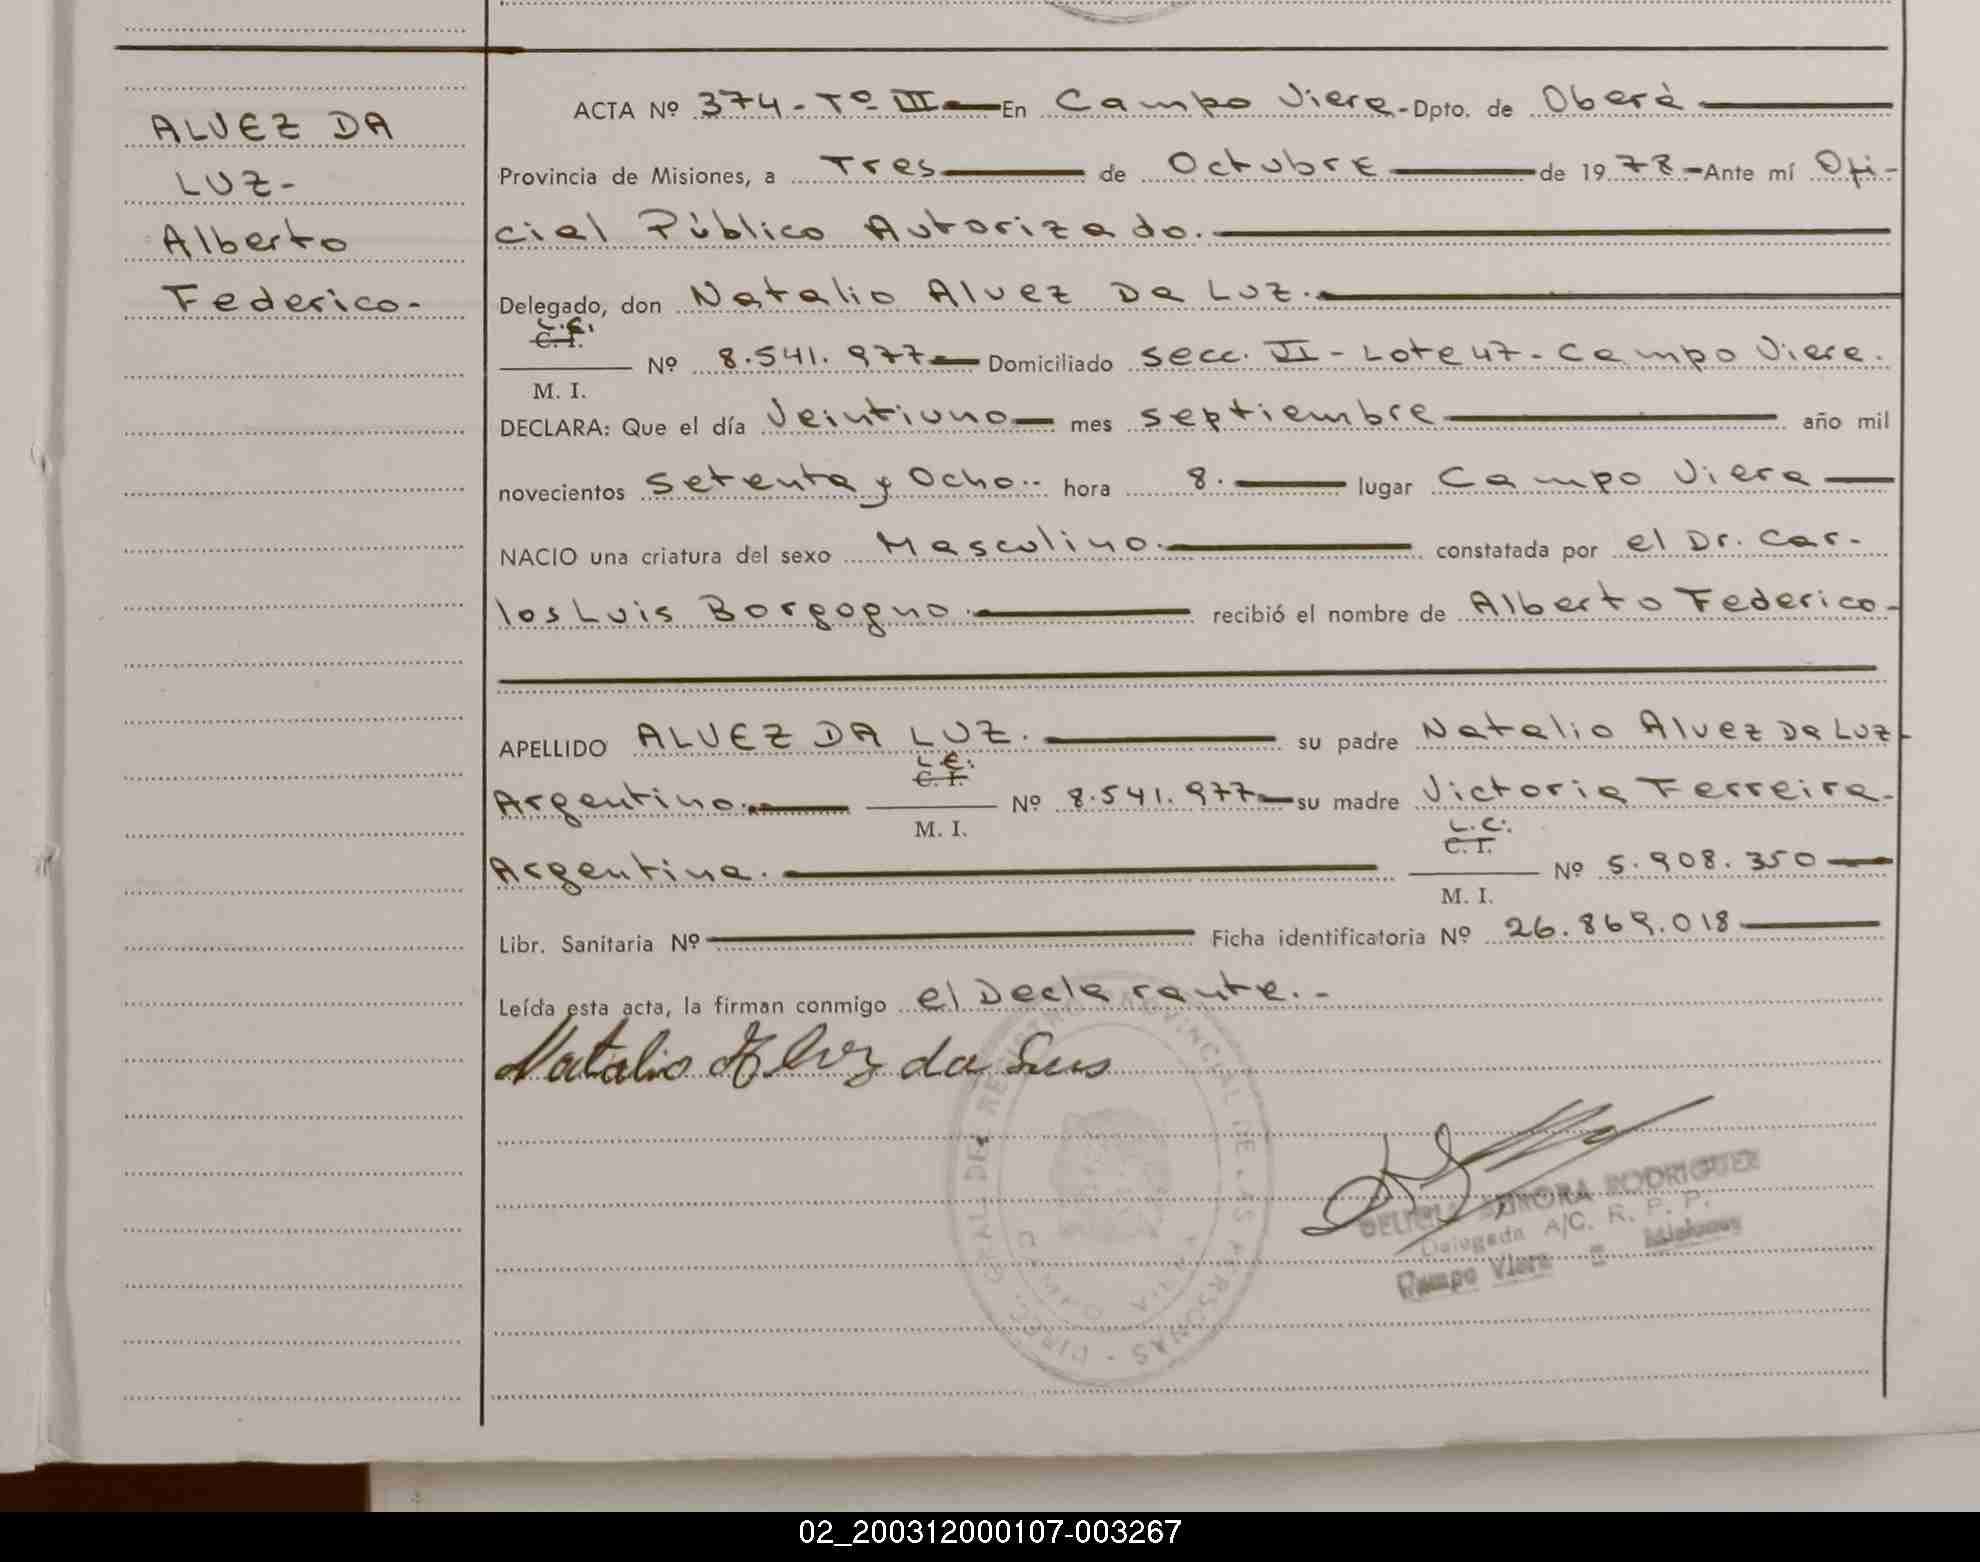 ALVEZ DA
LUZ-
Alberto
Federico-
ACTA Nº 374-Tº III En Campo Viera-Dpto. de Oberá
Provincia de Misiones, a Tres de Octubre de 1978-Ante mí Ofi-
cial Público Autorizado.
Delegado, don Natalio Alvez Da Luz.
L.E.
C. I.
Nº 8.541.977 Domiciliado Secc. VI-Lote 47-Campo Viera.
M. I.
DECLARA: Que el día Veintiuno mes Septiembre año mil
novecientos Setenta y Ocho.- hora 8. lugar Campo Viera
NACIO una criatura del sexo Masculino. constatada por el Dr. Car-
los Luis Borgogno. recibió el nombre de Alberto Federico-
APELLIDO ALVEZ DA LUZ. su padre Natalio Alvez Da Luz-
L.E.
C. I.
Argentino. Nº 8.541.977 su madre Victoria Ferreira-
M. I.
L.C.
C. I.
Argentina. Nº 5.908.350
M. I.
Libr. Sanitaria Nº Ficha identificatoria Nº 26.869.018
Leída esta acta, la firman conmigo el Declarante.-
Natalio Alvez da Lus
DIRECC. GRAL. DEL REGISTRO PROVINCIAL DE LAS PERSONAS
CAMPO VIERA
RODRIGUEZ
Delegada A/C. R. P. P.
Campo Viera - Misiones
02_200312000107-003267